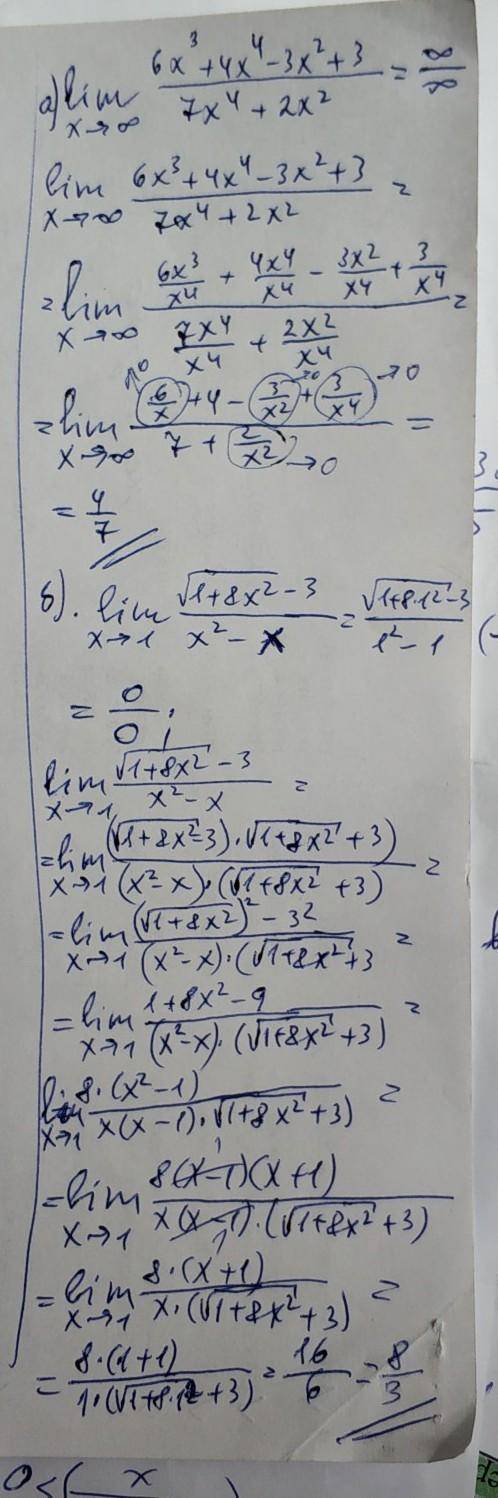 а) lim x→∞ (6x³+4x⁴-3x²+3)/(7x⁴+2x²) = ∞/∞
lim x→∞ (6x³+4x⁴-3x²+3)/(7x⁴+2x²) =
= lim x→∞ (6x³/x⁴ + 4x⁴/x⁴ - 3x²/x⁴ + 3/x⁴)/(7x⁴/x⁴ + 2x²/x⁴) =
= lim x→∞ (6/x →0 + 4 - 3/x² →0 + 3/x⁴ →0)/(7 + 2/x² →0) =
= 4/7
б). lim x→1 (√(1+8x²) - 3)/(x² - x) = (√(1+8·1²) - 3)/(1² - 1)
= 0/0 ;
lim x→1 (√(1+8x²) - 3)/(x² - x) =
= lim x→1 ((√(1+8x²) - 3)·√(1+8x²) + 3)/((x² - x)·(√(1+8x²) + 3) =
= lim x→1 ((√(1+8x²))² - 3²)/((x² - x)·(√(1+8x²) + 3 =
= lim x→1 (1+8x² - 9)/((x² - x)·(√(1+8x²) + 3) =
lim x→1 8·(x² - 1)/(x(x - 1)·√(1+8x²) + 3) =
= lim x→1 8(x-1)(x+1)/(x(x-1)·(√(1+8x²) + 3)
= lim x→1 8·(x+1)/(x·(√(1+8x²) + 3) =
= 8·(1+1)/(1·(√(1+8·1²) + 3) = 16/6 = 8/3
0<( x )